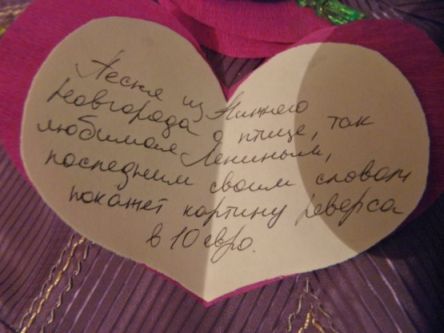 Песня из Нижнего
Новгорода о птице, так
любимая Лениным,
последним своим словом
покажет картину реверса
в 10 евро.